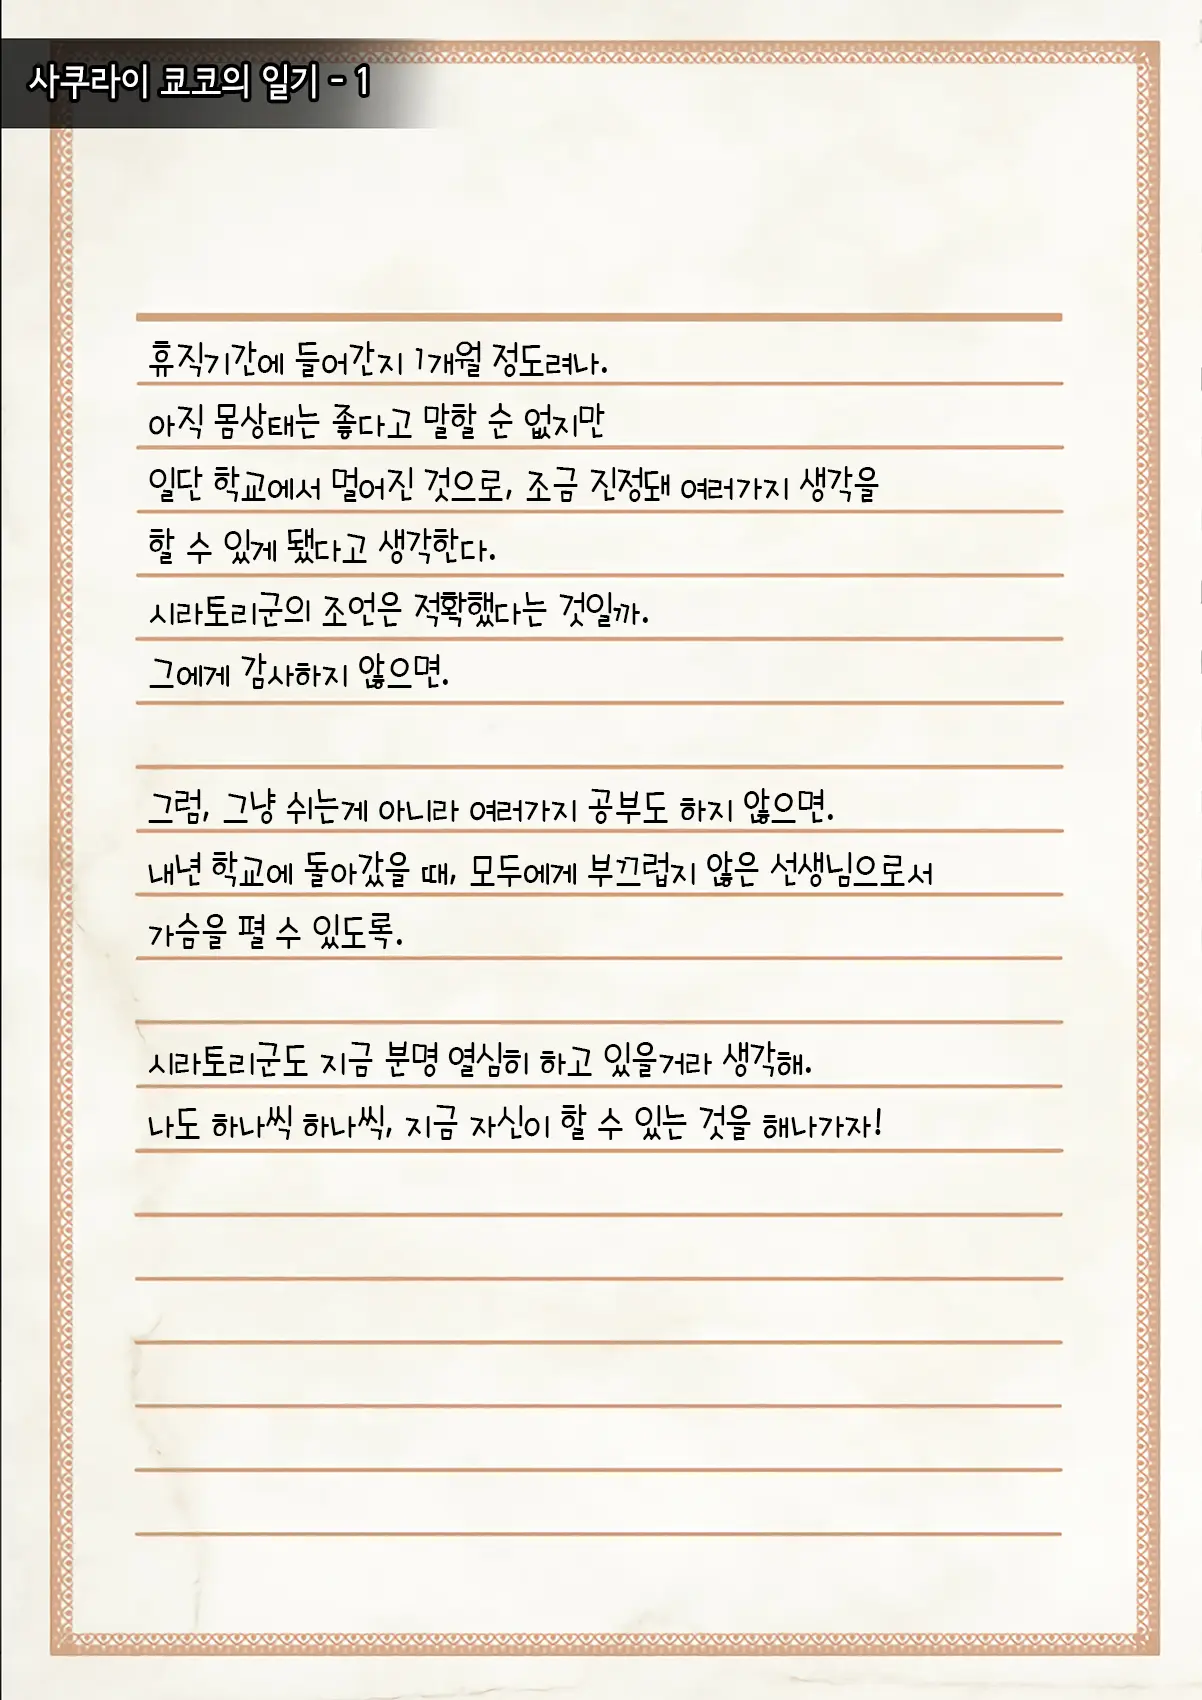 사쿠라이 쿄코의 일기 - 1
휴직기간에 들어간지 1개월 정도려나.
아직 몸상태는 좋다고 말할 순 없지만
일단 학교에서 멀어진 것으로, 조금 진정돼 여러가지 생각을
할 수 있게 됐다고 생각한다.
시라토리군의 조언은 적확했다는 것일까.
그에게 감사하지 않으면.
그럼, 그냥 쉬는게 아니라 여러가지 공부도 하지 않으면.
내년 학교에 돌아갔을 때, 모두에게 부끄럽지 않은 선생님으로서
가슴을 펼 수 있도록.
시라토리군도 지금 분명 열심히 하고 있을거라 생각해.
나도 하나씩 하나씩, 지금 자신이 할 수 있는 것을 해나가자!